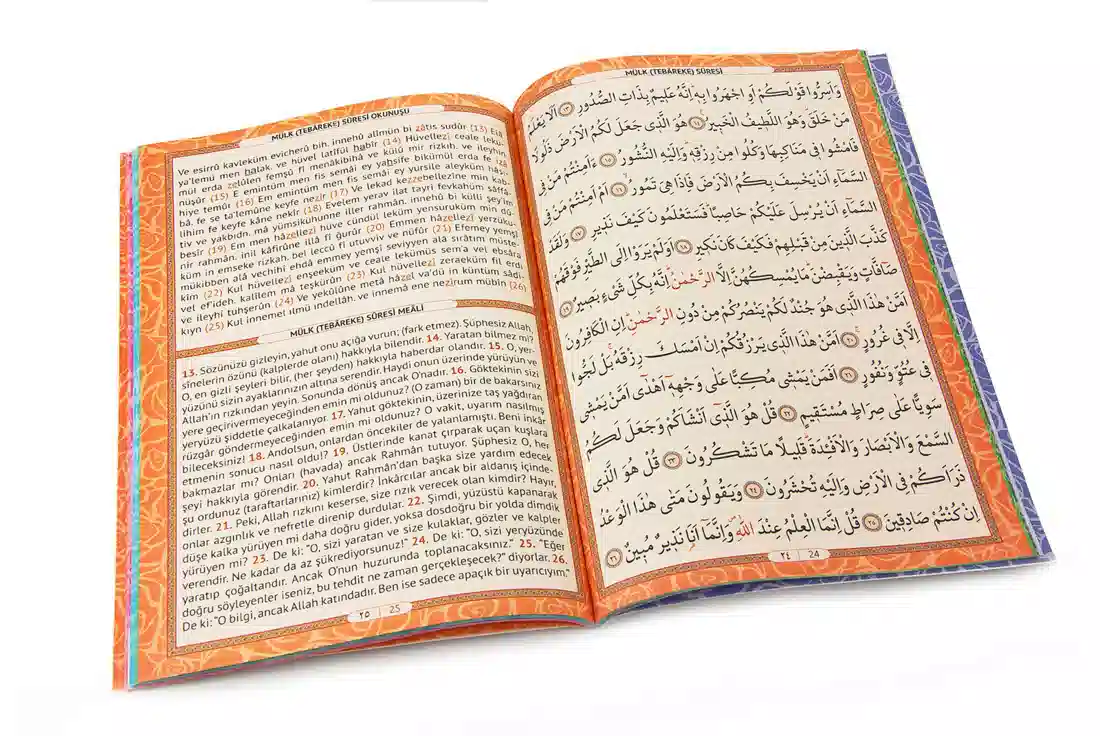 MÜLK (TEBÂREKE) SÛRESİ
وَاَسِرُّوا قَوْلَكُمْ اَوِ اجْهَرُوا بِهٖ اِنَّهُ عَلٖيمٌ بِذَاتِ الصُّدُورِ ﴿١٣﴾ اَلَا يَعْلَمُ
مَنْ خَلَقَ وَهُوَ اللَّطٖيفُ الْخَبٖيرُ ﴿١٤﴾ هُوَ الَّذٖى جَعَلَ لَكُمُ الْاَرْضَ ذَلُولًا
فَامْشُوا فٖى مَنَاكِبِهَا وَكُلُوا مِنْ رِزْقِهٖ وَاِلَيْهِ النُّشُورُ ﴿١٥﴾ ءَاَمِنْتُمْ مَنْ فِى
السَّمَاءِ اَنْ يَخْسِفَ بِكُمُ الْاَرْضَ فَاِذَا هِىَ تَمُورُ ﴿١٦﴾ اَمْ اَمِنْتُمْ مَنْ فِى
السَّمَاءِ اَنْ يُرْسِلَ عَلَيْكُمْ حَاصِبًا فَسَتَعْلَمُونَ كَيْفَ نَذٖيرِ ﴿١٧﴾ وَلَقَدْ
كَذَّبَ الَّذٖينَ مِنْ قَبْلِهِمْ فَكَيْفَ كَانَ نَكٖيرِ ﴿١٨﴾ اَوَلَمْ يَرَوْا اِلَى الطَّيْرِ فَوْقَهُمْ
صَافَّاتٍ وَيَقْبِضْنَ مَا يُمْسِكُهُنَّ اِلَّا الرَّحْمٰنُ اِنَّهُ بِكُلِّ شَىْءٍ بَصٖيرٌ ﴿١٩﴾
اَمَّنْ هٰذَا الَّذٖى هُوَ جُنْدٌ لَكُمْ يَنْصُرُكُمْ مِنْ دُونِ الرَّحْمٰنِ اِنِ الْكَافِرُونَ
اِلَّا فٖى غُرُورٍ ﴿٢٠﴾ اَمَّنْ هٰذَا الَّذٖى يَرْزُقُكُمْ اِنْ اَمْسَكَ رِزْقَهُ بَلْ لَجُّوا
فٖى عُتُوٍّ وَنُفُورٍ ﴿٢١﴾ اَفَمَنْ يَمْشٖى مُكِبًّا عَلٰى وَجْهِهٖ اَهْدٰى اَمَّنْ يَمْشٖى
سَوِيًّا عَلٰى صِرَاطٍ مُسْتَقٖيمٍ ﴿٢٢﴾ قُلْ هُوَ الَّذٖى اَنْشَاَكُمْ وَجَعَلَ لَكُمُ
السَّمْعَ وَالْاَبْصَارَ وَالْاَفْئِدَةَ قَلٖيلًا مَا تَشْكُرُونَ ﴿٢٣﴾ قُلْ هُوَ الَّذٖى
ذَرَاَكُمْ فِى الْاَرْضِ وَاِلَيْهِ تُحْشَرُونَ ﴿٢٤﴾ وَيَقُولُونَ مَتٰى هٰذَا الْوَعْدُ
اِنْ كُنْتُمْ صَادِقٖينَ ﴿٢٥﴾ قُلْ اِنَّمَا الْعِلْمُ عِنْدَ اللّٰهِ وَاِنَّمَا اَنَا نَذٖيرٌ مُبٖينٌ ﴿٢٦﴾
٢٤ | 24
MÜLK (TEBÂREKE) SÛRESİ OKUNUŞU
Ve esirrû kavleküm evicherû bih, innehû alîmün bi zâtis sudûr (13) Elâ
ya'lemü men halak, ve hüvel latîfül habîr (14) Hüvellezî ceale lekü-
mül erda zelûlen femşû fî menâkibihâ ve külû mir rizkıh, ve ileyhin
nüşûr (15) E emintüm men fis semâi ey yahsife bikümül erda fe izâ
hiye temûr (16) Em emintüm men fis semâi ey yursile aleyküm hâsı-
bâ, fe se ta'lemûne keyfe nezîr (17) Ve lekad kezzebellezîne min kab-
lihim fe keyfe kâne nekîr (18) Evelem yerav ilat tayri fevkahüm sâffâ-
tiv ve yakbıdn, mâ yümsikühunne iller rahmân, innehû bi külli şey'im
besîr (19) Em men hâzellezî hüve cündül leküm yensuruküm min dû-
nir rahmân, inil kâfirûne illâ fî ğurûr (20) Emmen hâzellezî yerzüku-
küm in emseke rizkah, bel leccû fî utuvviv ve nüfûr (21) Efemey yemşî
mükibben alâ vechihî ehdâ emmey yemşî seviyyen alâ sırâtım müste-
kîm (22) Kul hüvellezî enşeeküm ve ceale lekümüs sem'a vel ebsâra
vel ef'ideh, kalîlem mâ teşkürûn (23) Kul hüvellezî zeraeküm fil erdı
ve ileyhi tuhşerûn (24) Ve yekûlûne metâ hâzel va'dü in küntüm sâdi-
kıyn (25) Kul innemel ılmü ındellâh, ve innemâ ene nezîrum mübîn (26)
MÜLK (TEBÂREKE) SÛRESİ MEÂLİ
13. Sözünüzü gizleyin, yahut onu açığa vurun; (fark etmez). Şüphesiz Allah,
sînelerin özünü (kalplerde olanı) hakkıyla bilendir. 14. Yaratan bilmez mi?
O, en gizli şeyleri bilir, (her şeyden) hakkıyla haberdar olandır. 15. O, yer-
yüzünü sizin ayaklarınızın altına serendir. Haydi onun üzerinde yürüyün ve
Allah'ın rızkından yeyin. Sonunda dönüş ancak O'nadır. 16. Göktekinin sizi
yere geçirivermeyeceğinden emin mi oldunuz? (O zaman) bir de bakarsınız
yeryüzü şiddetle çalkalanıyor. 17. Yahut göktekinin, üzerinize taş yağdıran
rüzgâr göndermeyeceğinden emin mi oldunuz? O vakit, uyarım nasılmış
bileceksiniz! 18. Andolsun, onlardan öncekiler de yalanlamıştı. Beni inkâr
etmenin sonucu nasıl oldu!? 19. Üstlerinde kanat çırparak uçan kuşlara
bakmazlar mı? Onları (havada) ancak Rahmân tutuyor. Şüphesiz O, her
şeyi hakkıyla görendir. 20. Yahut Rahmân'dan başka size yardım edecek
şu ordunuz (taraftarlarınız) kimlerdir? İnkârcılar ancak bir aldanış içinde-
dirler. 21. Peki, Allah rızkını keserse, size rızık verecek olan kimdir? Hayır,
onlar azgınlık ve nefretle direnip durdular. 22. Şimdi, yüzüstü kapanarak
düşe kalka yürüyen mi daha doğru gider, yoksa dosdoğru bir yolda dimdik
yürüyen mi? 23. De ki: "O, sizi yaratan ve size kulaklar, gözler ve kalpler
verendir. Ne kadar da az şükrediyorsunuz!" 24. De ki: "O, sizi yeryüzünde
yaratıp çoğaltandır. Ancak O'nun huzurunda toplanacaksınız." 25. "Eğer
doğru söyleyenler iseniz, bu tehdit ne zaman gerçekleşecek?" diyorlar. 26.
De ki: "O bilgi, ancak Allah katındadır. Ben ise sadece apaçık bir uyarıcıyım."
٢٥ | 25